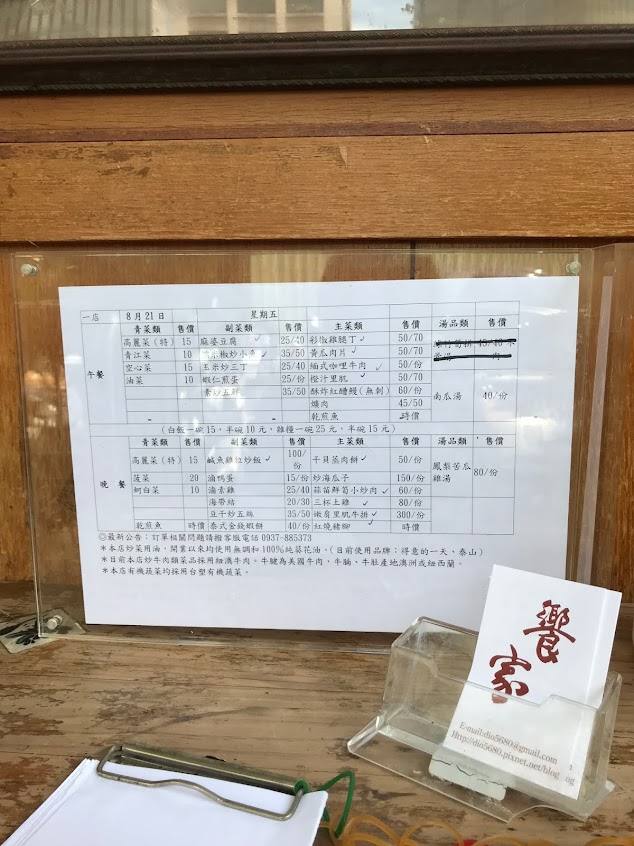 一店 8月21日 星期五
青菜類 售價 副菜類 售價 主菜類 售價 湯品類 售價
午餐
高麗菜(特) 15 麻婆豆腐 25/40 彩椒雞腿丁 50/70
青江菜 10 炒小卷 35/50 黃瓜肉片 50/70
空心菜 15 玉米炒三丁 25/40 緬式咖哩牛肉 50/份
油菜 10 蝦仁煎蛋 25/份 橙汁里肌 50/份
素炒五鮮 35/50 酥炸紅糟鰻(無刺) 60/份 南瓜湯 40/份
爌肉 45/50
乾煎魚 時價
(白飯一碗15,半碗10元,雞糧一碗25元,半碗15元)
青菜類 售價 副菜類 售價 主菜類 售價 湯品類 售價
晚餐
高麗菜(特) 15 鹹魚雞粒炒飯 100/份 干貝蒸肉餅 50/份 鳳梨苦瓜雞湯 80/份
菠菜 20 滷鴨蛋 15/份 炒海瓜子 150/份
蚵白菜 10 滷素雞 25/40 蒜苗鮮筍小炒肉 60/份
海帶結 20/30 三杯土雞 80/份
豆干炒五絲 35/50 嫩肩里肌牛排 300/份
乾煎魚 時價 泰式金錢蝦餅 40/份 紅燒豬腳 時價
◎最新公告:訂單相關問題請撥客服電話 0937-885373
*本店炒菜用油,開業以來均使用無調和100%純葵花油。(目前使用品牌:得意的一天、泰山)
*目前本店炒牛肉類菜品採用紐澳牛肉。牛腱為美國牛肉,牛腩、牛肚產地澳洲或紐西蘭。
*本店有機蔬菜均採用台塑有機蔬菜。
饗家
E-mail:dio5680@gmail.com
Http://dio5680.pixnet.net/blog